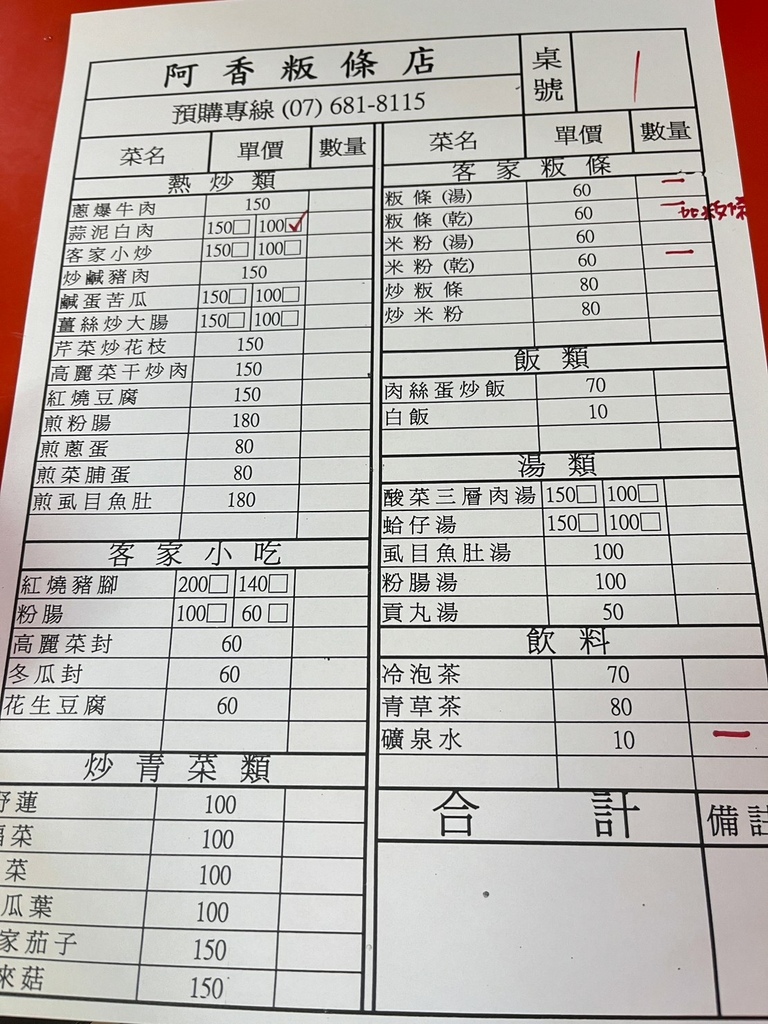 阿香粄條店
桌號 1
預購專線 (07) 681-8115
菜名 單價 數量
熱炒類
蔥爆牛肉 150
蒜泥白肉 150□ 100□✓
客家小炒 150□ 100□
炒鹹豬肉 150
鹹蛋苦瓜 150□ 100□
薑絲炒大腸 150□ 100□
芹菜炒花枝 150
高麗菜干炒肉 150
紅燒豆腐 150
煎粉腸 180
煎蔥蛋 80
煎菜脯蛋 80
煎虱目魚肚 180
客家小吃
紅燒豬腳 200□ 140□
粉腸 100□ 60□
高麗菜封 60
冬瓜封 60
花生豆腐 60
炒青菜類
野蓮 100
福菜 100
菜 100
瓜葉 100
家茄子 150
來菇 150
菜名 單價 數量
客家粄條
粄條(湯) 60 一
粄條(乾) 60 一 加粄條
米粉(湯) 60
米粉(乾) 60 一
炒粄條 80
炒米粉 80
飯類
肉絲蛋炒飯 70
白飯 10
湯類
酸菜三層肉湯 150□ 100□
蛤仔湯 150□ 100□
虱目魚肚湯 100
粉腸湯 100
貢丸湯 50
飲料
冷泡茶 70
青草茶 80
礦泉水 10 一
合計 備註